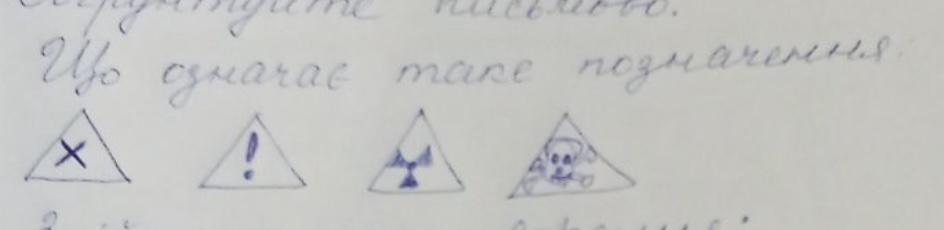 письмово.
Що означає таке позначення.
×
!